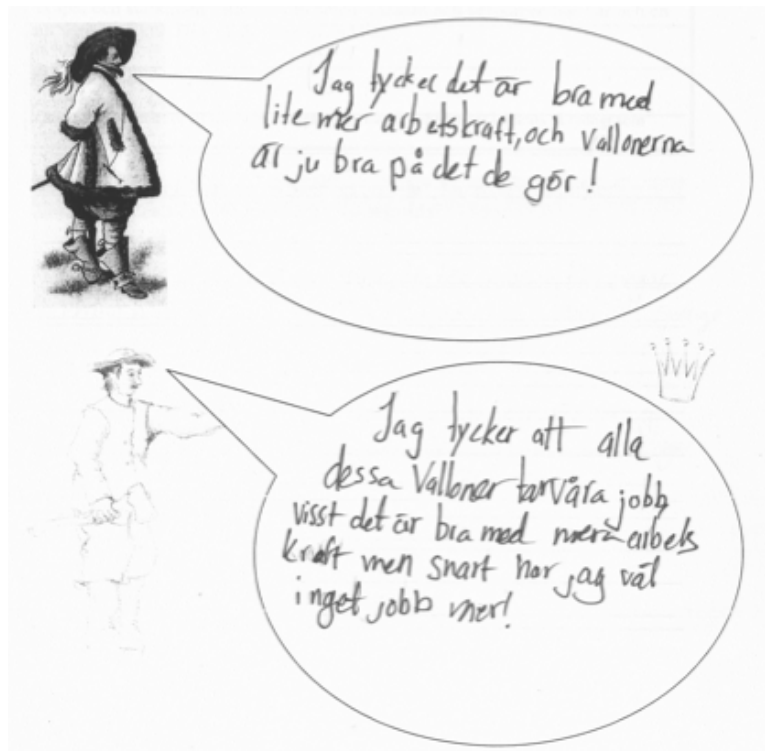 Jag tycker det är bra med
lite mer arbetskraft, och Vallonerna
är ju bra på det de gör!
Jag tycker att alla
dessa Valloner tar våra jobb,
visst det är bra med mera arbets
kraft men snart har jag väl
inget jobb mer!